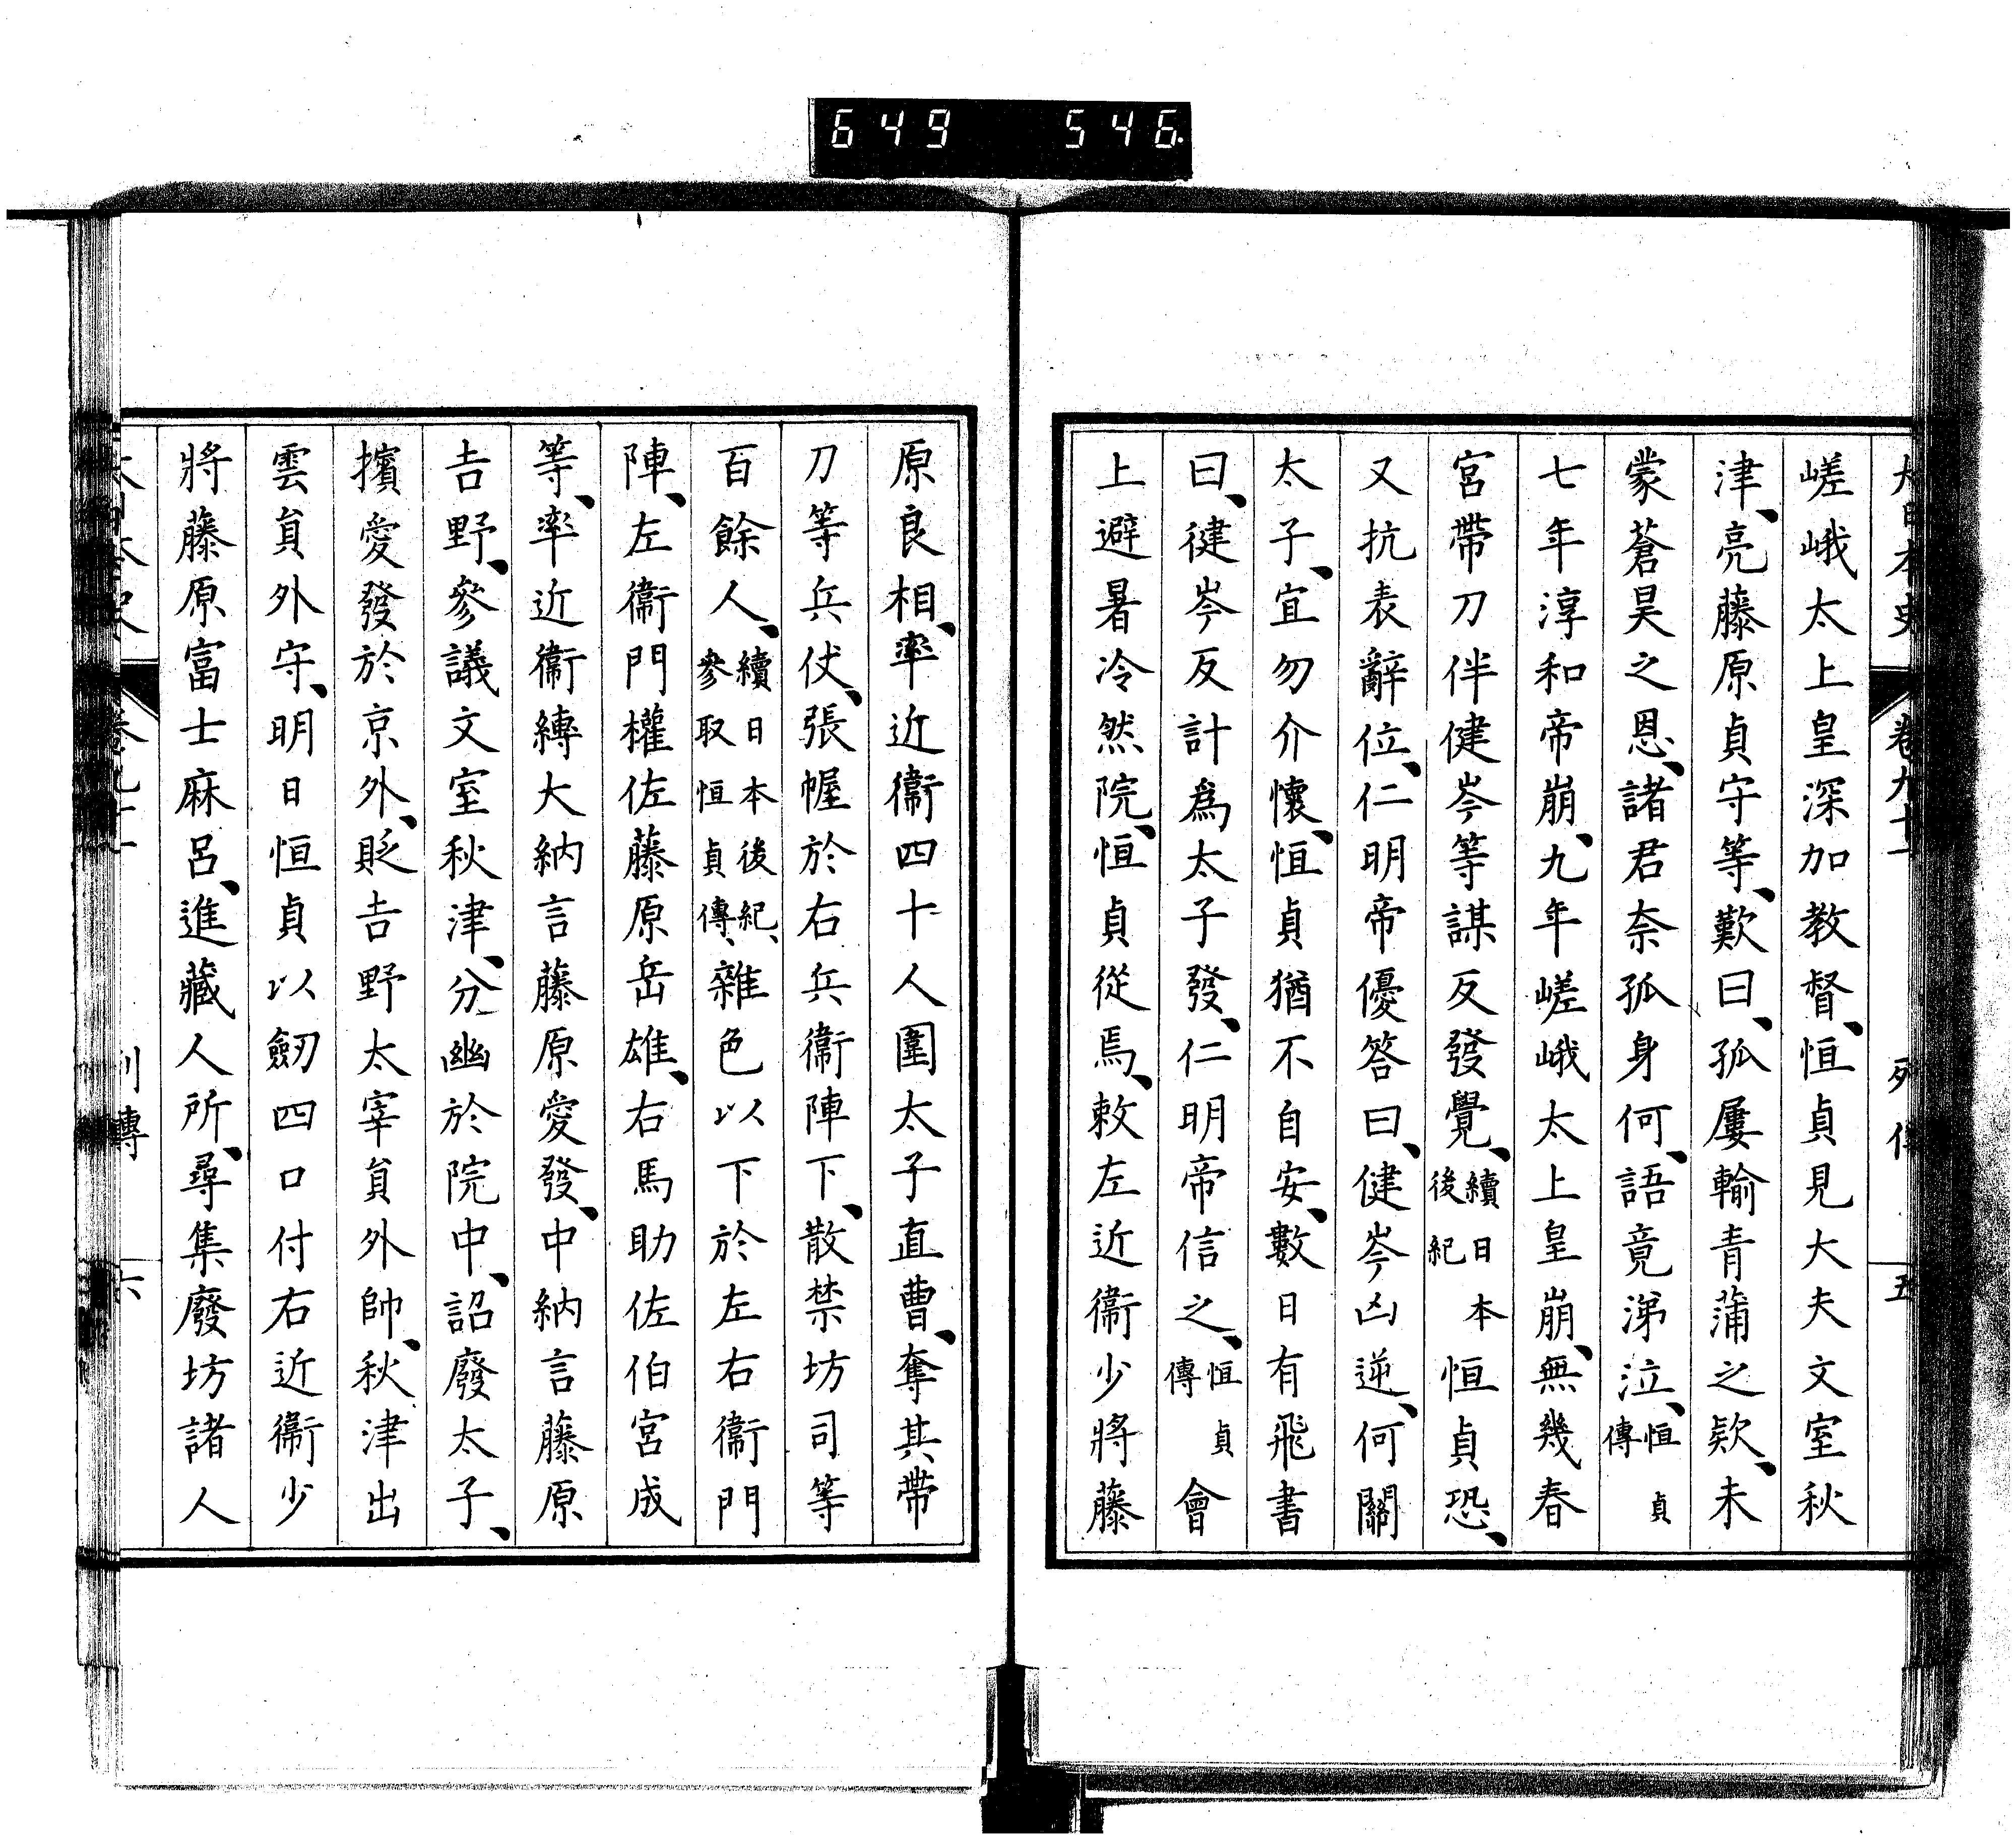 649 546
大日本史 卷九十一 列傳 五
嵯峨太上皇深加教督、恒貞見大夫文室秋
津、亮藤原貞守等、歎曰、孤屢輸青蒲之款、未
蒙蒼昊之恩、諸君奈孤身何、語竟涕泣、恒貞傳
七年淳和帝崩、九年嵯峨太上皇崩、無幾春
宮帶刀伴健岑等謀反發覺、續日本後紀恒貞恐、
又抗表辭位、仁明帝優答曰、健岑凶逆、何關
太子、宜勿介懷、恒貞猶不自安、數日有飛書
曰、健岑反計為太子發、仁明帝信之、恒貞傳會
上避暑冷然院、恒貞從焉、敕左近衞少將藤
原良相、率近衞四十人圍太子直曹、奪其帶
刀等兵仗、張幄於右兵衞陣下、散禁坊司等
百餘人、續日本後紀、參取恒貞傳、雜色以下於左右衞門
陣、左衞門權佐藤原岳雄、右馬助佐伯宮成
等、率近衞縛大納言藤原愛發、中納言藤原
吉野、參議文室秋津、分幽於院中、詔廢太子、
擯愛發於京外、貶吉野太宰員外帥、秋津出
雲員外守、明日恒貞以劒四口付右近衞少
將藤原富士麻呂、進藏人所、尋集廢坊諸人
列傳 六